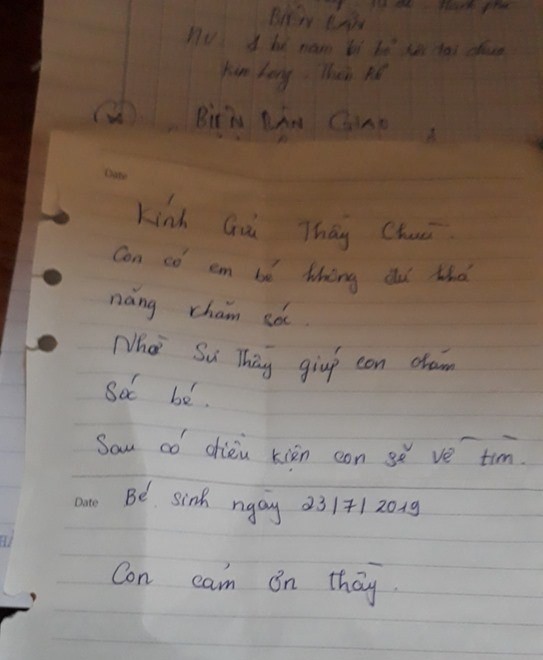 BIÊN BẢN
1 bé nam bị bỏ rơi tại chùa
Kim Long. Thiên
BIÊN BẢN GIAO
Date
Kính Gửi Thầy Chùa.
Con có em bé không đủ khả
năng chăm sóc.
Nhờ Sư Thầy giúp con chăm
sóc bé.
Sau có điều kiện con sẽ về tìm.
Date Bé sinh ngày 23/7/2019
Con cảm ơn thầy.